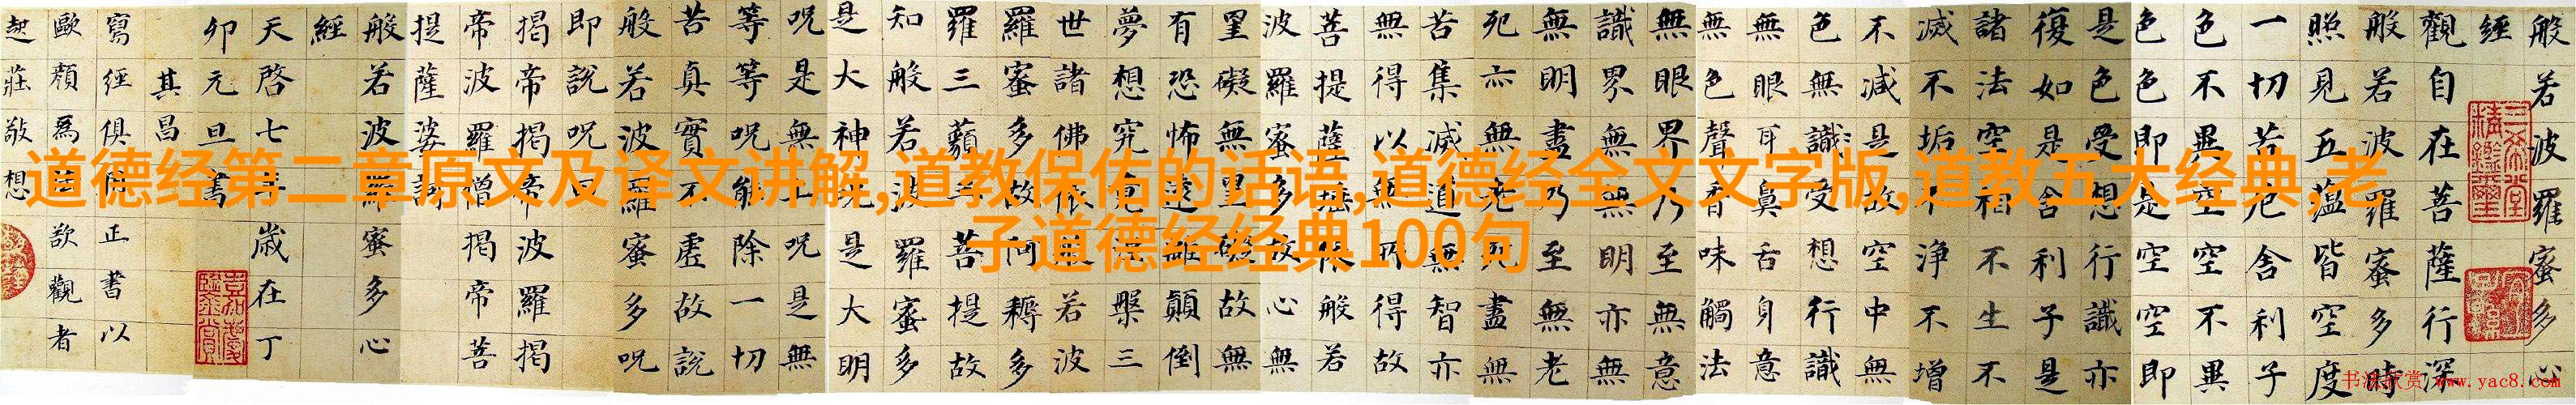 道德经第二章原文及译文讲解,道教保佑的话语,道德经全文文字版,道教五大经典,老
子道德经经典100句
般若波羅蜜多心
經
觀自在菩薩行深
般若波羅蜜多時
照見五蘊皆空度
一切苦厄舍利子
色不異空空不異
色色即是空空即
是色受想行識亦
復如是舍利子是
諸法空相不生不
滅不垢不淨不增
不減是故空中無
色無識受想行識
無眼耳鼻舌身意
無色聲香味觸法
無眼界乃至無意
識界無無明亦無
無明盡乃至無老
死亦無老死盡無
苦集滅道無智亦
無得以無所得故
菩提薩埵依般若
波羅蜜多故心無
罣礙無罣礙故無
有恐怖遠離顛倒
夢想究竟涅槃三
世諸佛依般若波
羅蜜多故阿耨多
羅三藐三菩提故
知般若波羅蜜多
是大神咒是大明
咒是無上咒是無
等等咒能除一切
苦真實不虛故說
般若波羅蜜多咒
即說咒曰
揭帝揭帝波羅揭
帝波羅僧揭帝菩
提薩婆訶
般若波羅蜜多心
經
天啓七年歲在丁
卯元旦書
其昌
寫經俱正書以
歐顏為法欲觀者
起莊敬想
书法欣赏 www.yac8.com